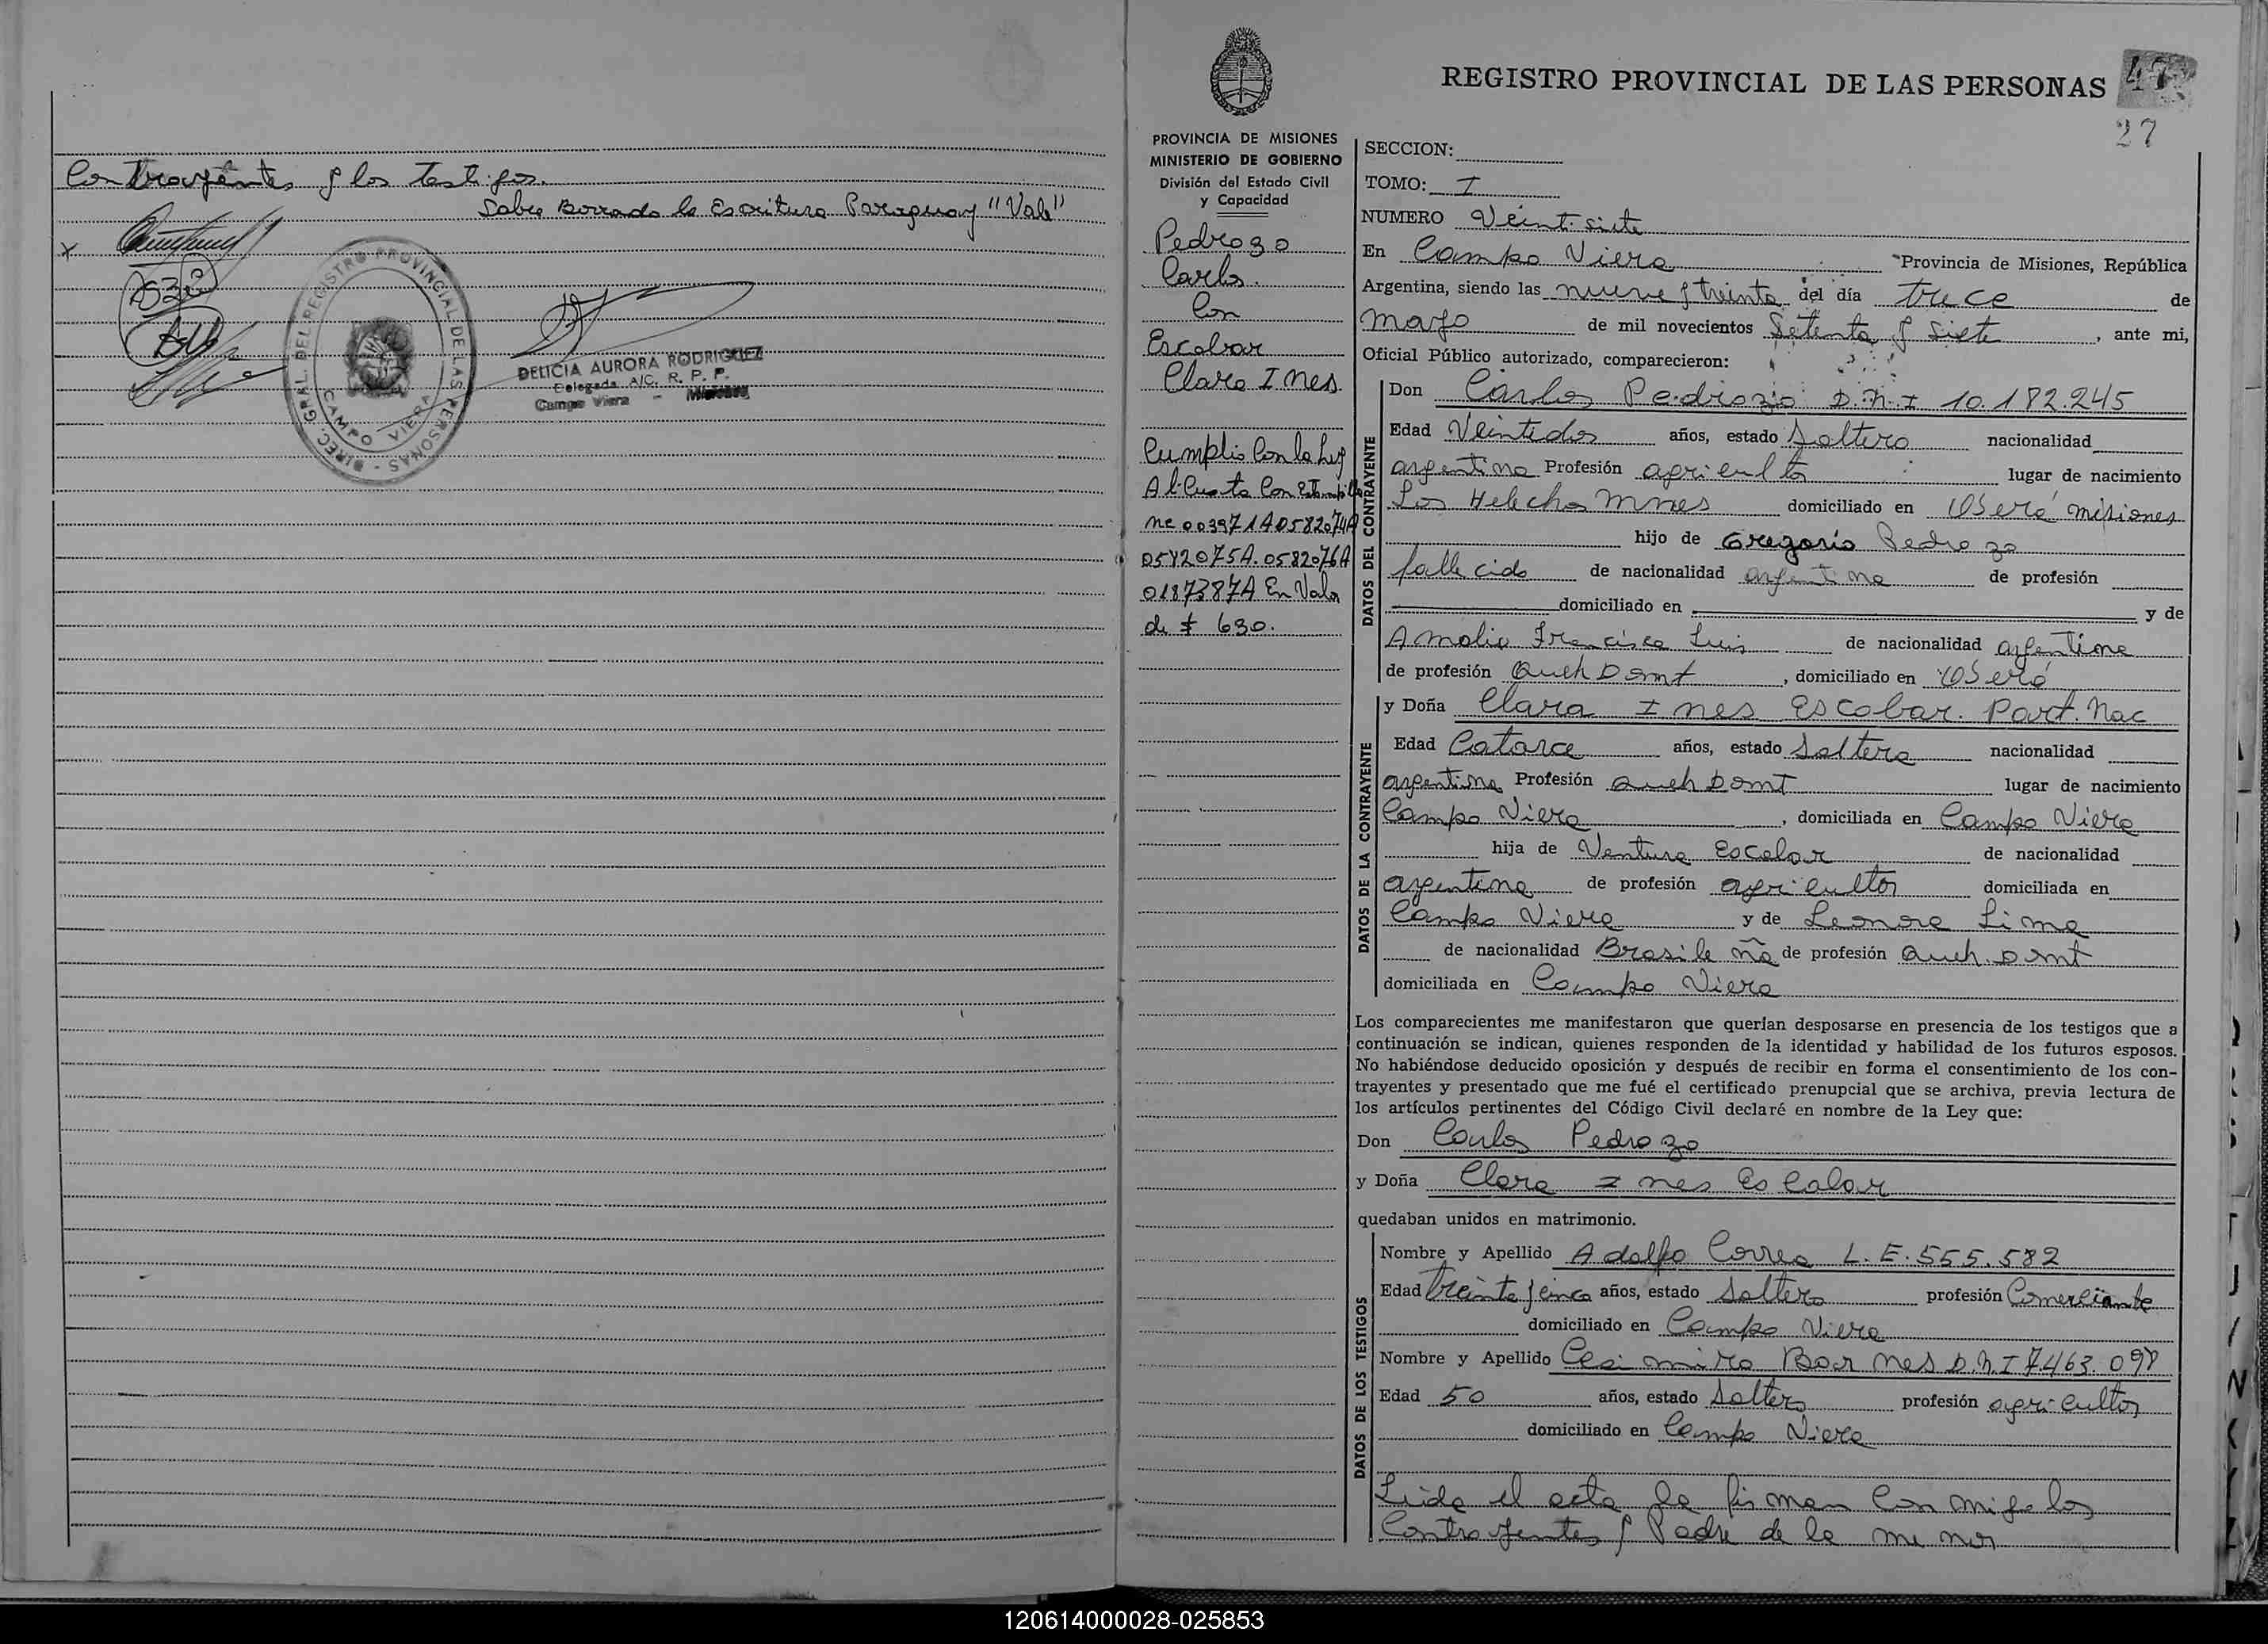 Contrayentes y los testigos.
Sobre Borrado la Escritura Paraguay "Vale"
DIREC. GRAL. DEL REGISTRO PROVINCIAL DE LAS PERSONAS -
CAMPO VIERA
DELICIA AURORA RODRIGUEZ
Delegada A/C. R. P. P.
Campo Viera - Misiones
REGISTRO PROVINCIAL DE LAS PERSONAS 47
27
PROVINCIA DE MISIONES
MINISTERIO DE GOBIERNO
División del Estado Civil
y Capacidad
Pedrozo
Carlos.
Con
Escobar
Clara Ines.
Cumplio Con la Ley
Al Cuota Con Estampilla
de $ 630.
SECCION:
TOMO: I
NUMERO Veintisiete
En Campo Viera Provincia de Misiones, República
Argentina, siendo las nueve y treinta del día trece de
mayo de mil novecientos Setenta y Siete, ante mi,
Oficial Público autorizado, comparecieron:
DATOS DEL CONTRAYENTE
Don Carlos Pedrozo D.N.I 10.182.245
Edad Veintidos años, estado Soltero nacionalidad
argentina Profesión agricultor lugar de nacimiento
Los Helechos Mnes domiciliado en Oberá misiones
hijo de Gregorio Pedrozo
fallecido de nacionalidad argentina de profesión
domiciliado en y de
Amalia Francisca Luis de nacionalidad argentina
de profesión Queh Domt, domiciliado en Oberá
DATOS DE LA CONTRAYENTE
y Doña Clara Ines Escobar. Part. Nac
Edad Catorce años, estado Soltera nacionalidad
argentina Profesión Queh Domt lugar de nacimiento
Campo Viera, domiciliada en Campo Viera
hija de Ventura Escobar de nacionalidad
argentina de profesión agricultor domiciliada en
Campo Viera y de Leonora Lima
de nacionalidad Brasileña de profesión Queh. Domt
domiciliada en Campo Viera
Los comparecientes me manifestaron que querían desposarse en presencia de los testigos que a
continuación se indican, quienes responden de la identidad y habilidad de los futuros esposos.
No habiéndose deducido oposición y después de recibir en forma el consentimiento de los con-
trayentes y presentado que me fué el certificado prenupcial que se archiva, previa lectura de
los artículos pertinentes del Código Civil declaré en nombre de la Ley que:
Don Carlos Pedrozo
y Doña Clara Ines Escobar
quedaban unidos en matrimonio.
DATOS DE LOS TESTIGOS
Nombre y Apellido Adolfo Correa L.E. 555.582
Edad treinta y cinco años, estado Soltero profesión Comerciante
domiciliado en Campo Viera
Nombre y Apellido Casimiro D.N.I 7.463.098
Edad 50 años, estado Soltero profesión agricultor
domiciliado en Campo Viera
Leida el acta la firman Conmigo los
Contrayentes y Padre de la menor
120614000028-025853